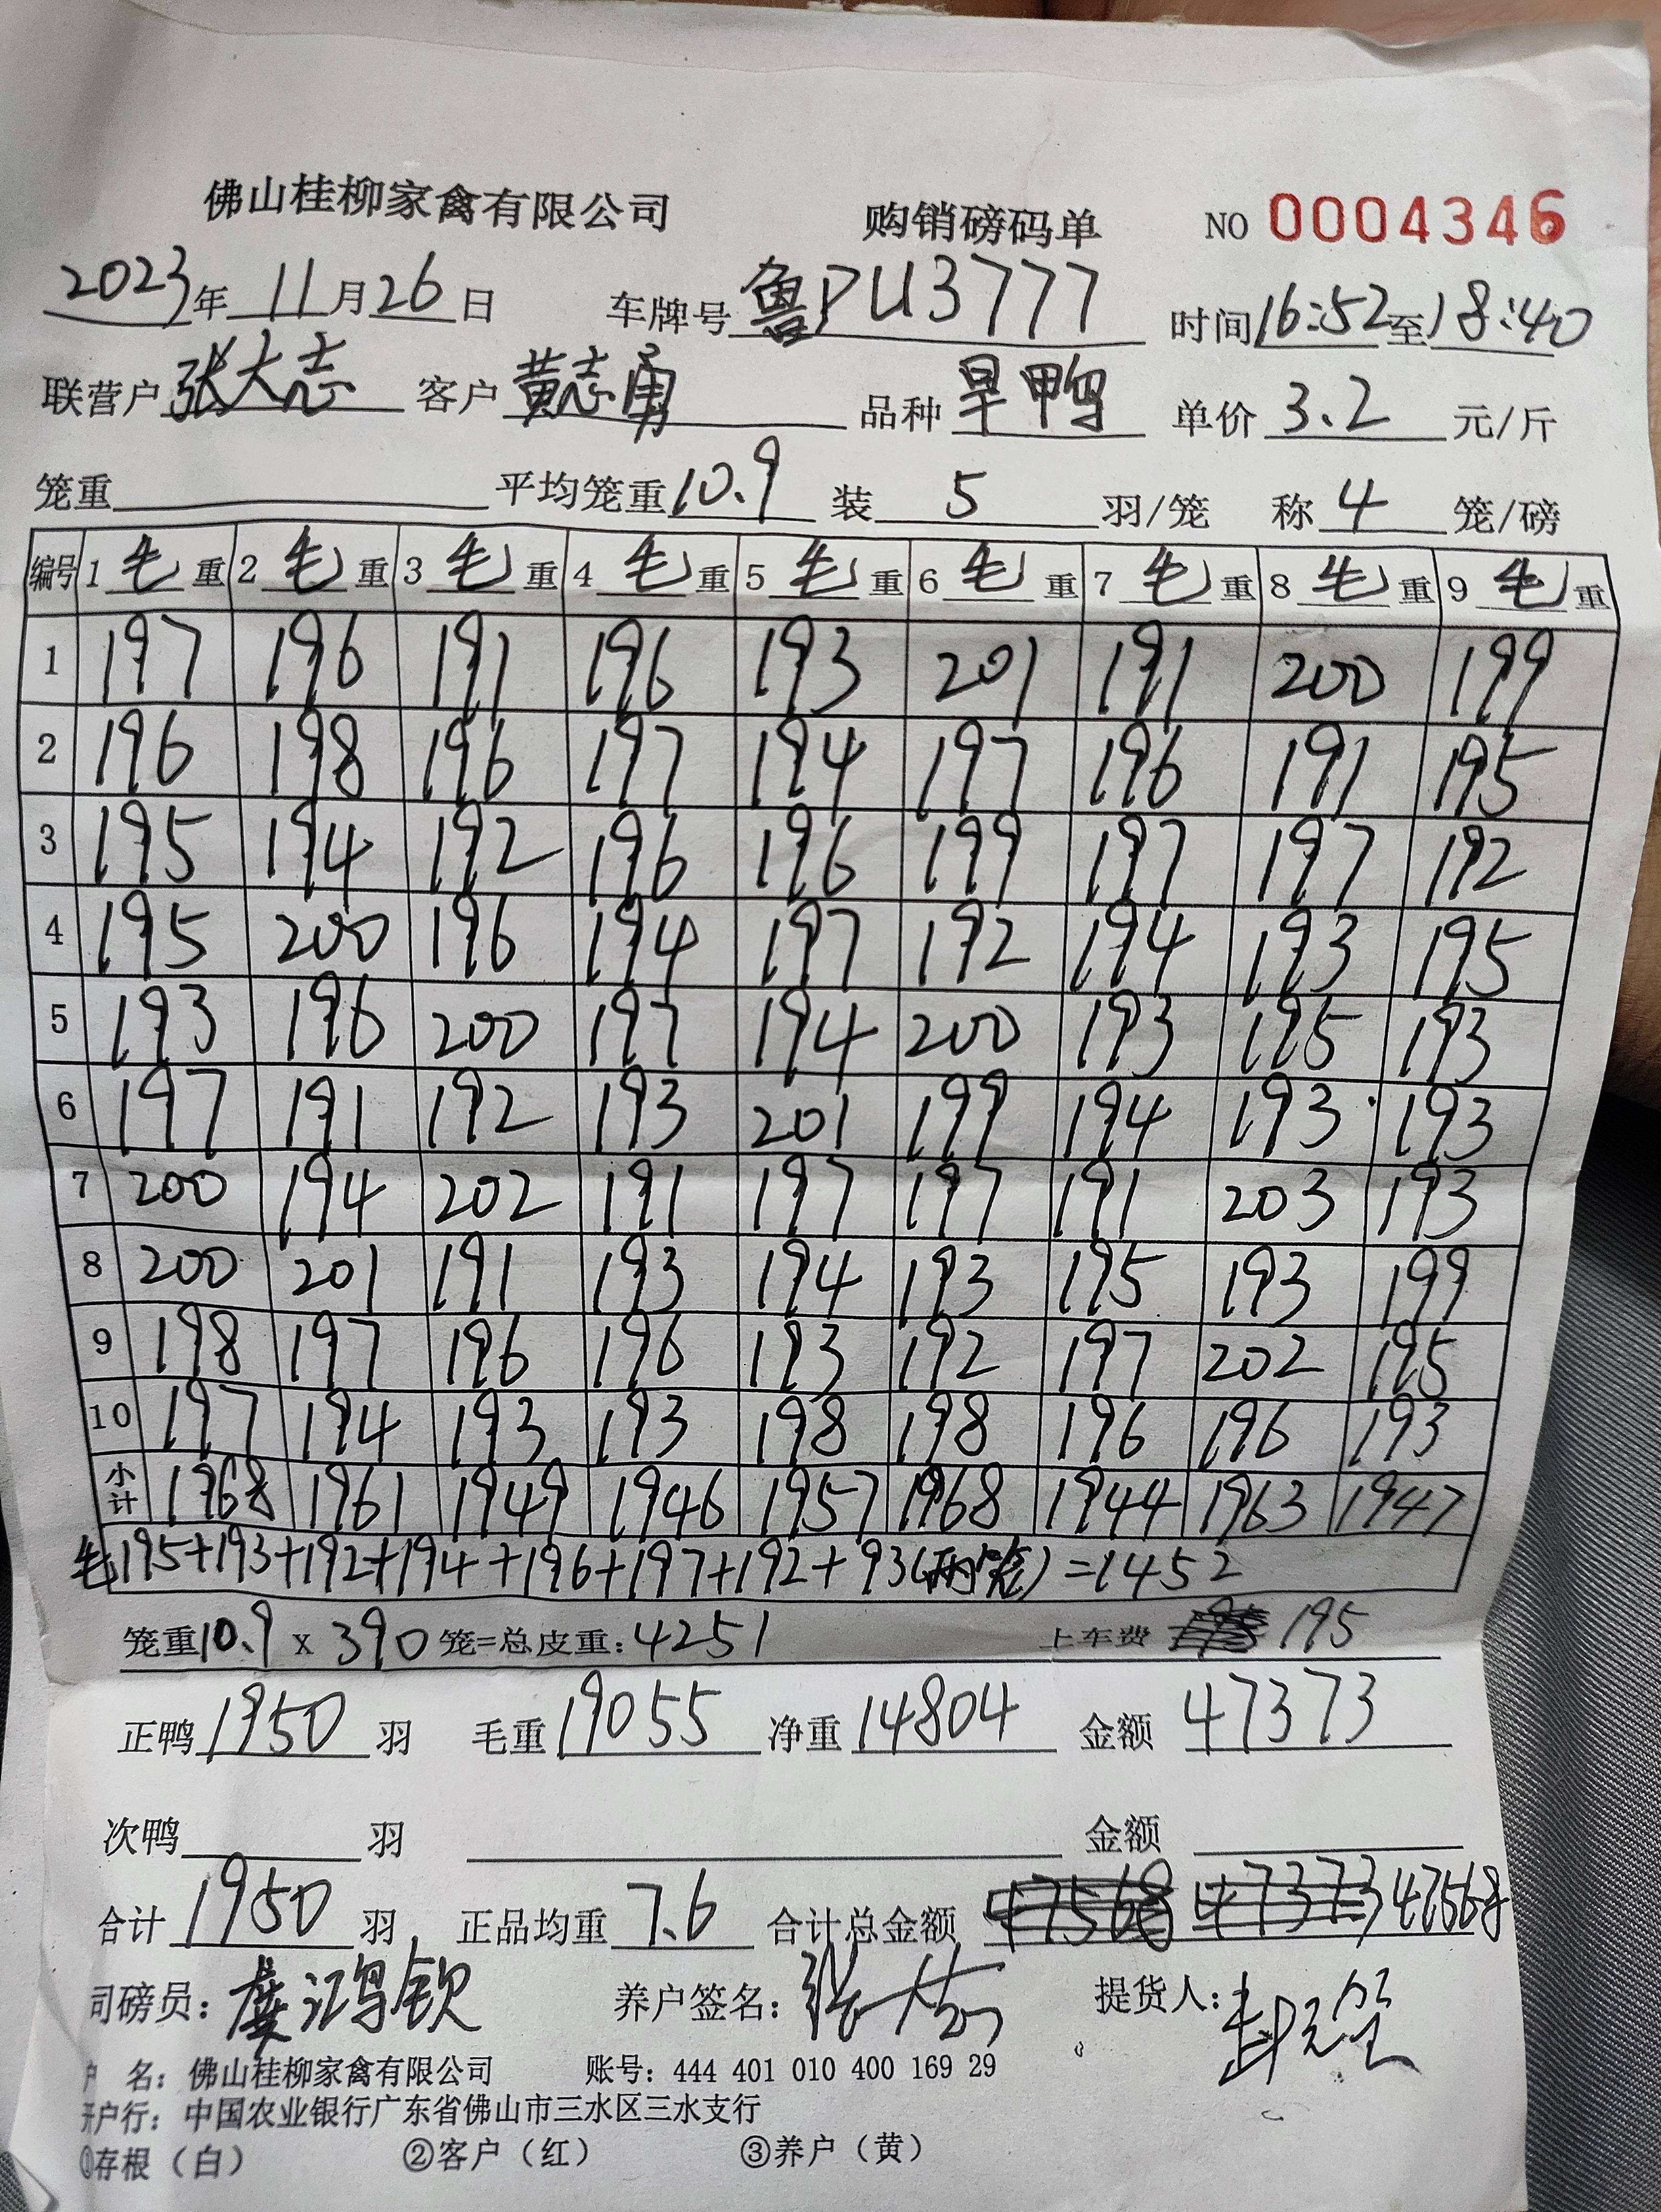 佛山桂柳家禽有限公司 购销磅码单 NO 0004346
2023年 11月26日 车牌号 鲁PU3777 时间16:52至18:40
联营户 张大志 客户 黄志勇 品种 旱鸭 单价 3.2 元/斤
笼重 平均笼重10.9 装 5 羽/笼 称 4 笼/磅
编号 1 毛 重 2 毛 重 3 毛 重 4 毛 重 5 毛 重 6 毛 重 7 毛 重 8 毛 重 9 毛 重
1 197 196 191 196 193 201 191 200 199
2 196 198 196 197 194 197 196 191 195
3 195 194 192 196 196 199 197 197 192
4 195 200 196 194 197 192 194 193 195
5 193 196 200 197 194 200 193 195 193
6 197 191 192 193 201 199 194 193 193
7 200 194 202 191 197 197 191 203 193
8 200 201 191 193 194 193 195 193 199
9 198 197 196 196 193 192 197 202 195
10 197 194 193 193 198 198 196 196 193
小计 1968 1961 1949 1946 1957 1968 1944 1963 1947
毛 195+193+192+194+196+197+192+93(两笼)=1452
笼重10.9 x 390 笼=总皮重:4251 上车费 195
正鸭 1950 羽 毛重 19055 净重 14804 金额 47373
次鸭 羽 金额
合计 1950 羽 正品均重 7.6 合计总金额 47568 47373 47568
司磅员: 鸿钦 养户签名: 张大志 提货人:
户 名: 佛山桂柳家禽有限公司 账号: 444 401 010 400 169 29
开户行: 中国农业银行广东省佛山市三水区三水支行
①存根（白） ②客户（红） ③养户（黄）